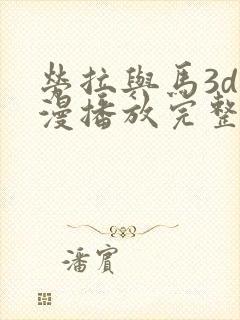 勞拉與馬3d
漫播放完整
潘賓